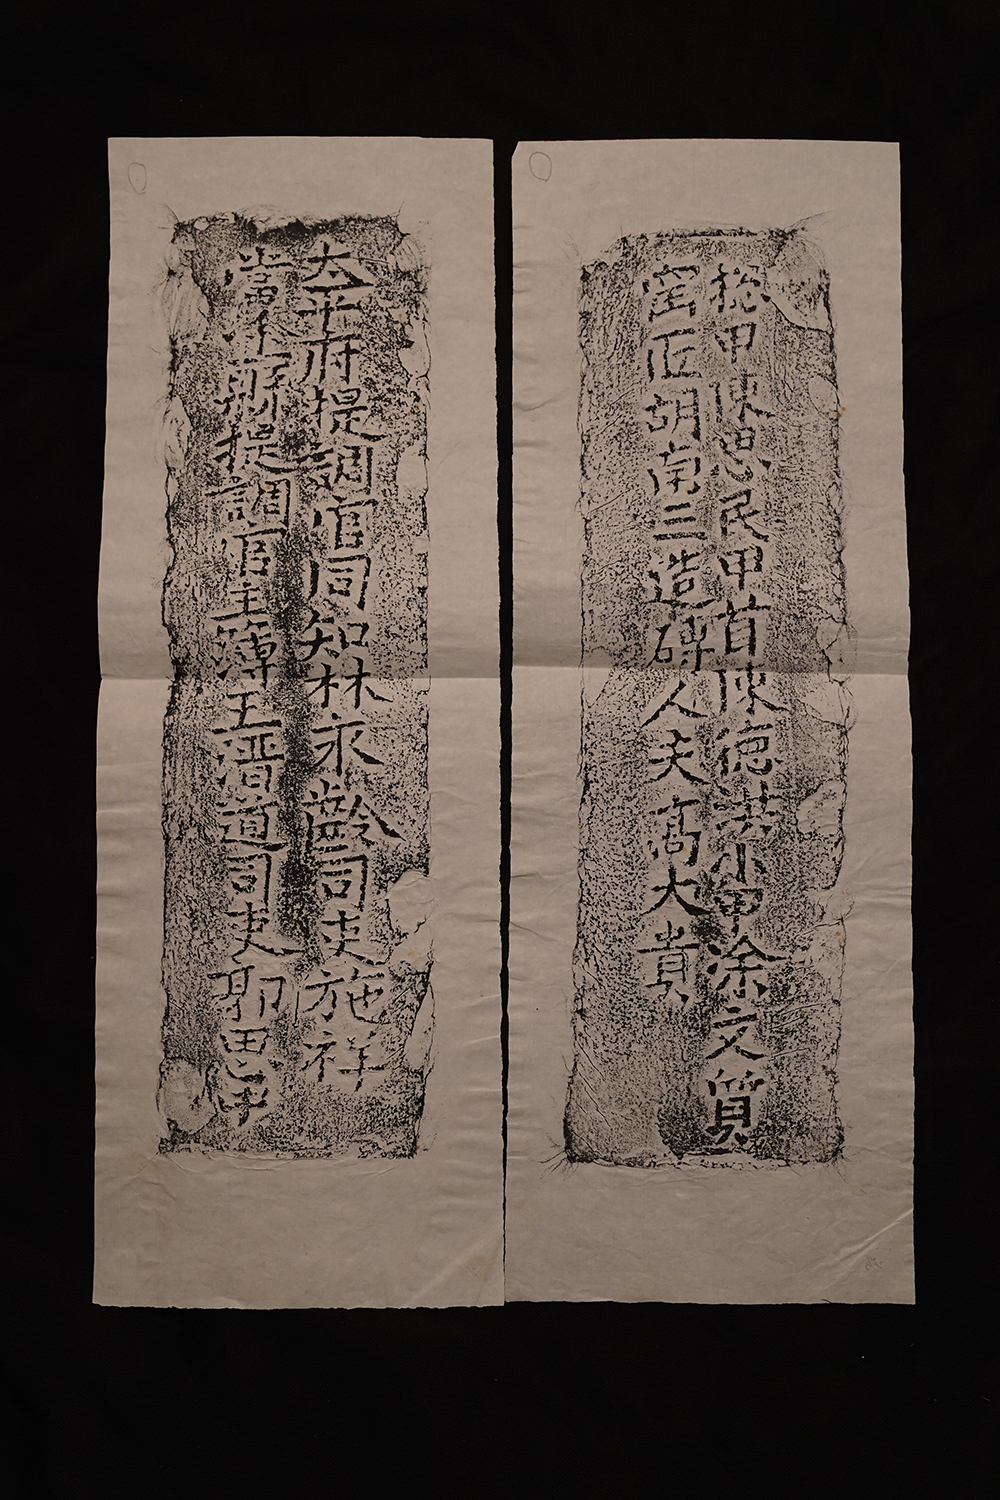 太平府提調官同知林永齡司吏施祥
當涂縣提調官主簿王溍道司吏郭思中
總甲陳思民甲首陳德洪小甲涂文質
窑匠胡南三造磚人夫高大貴